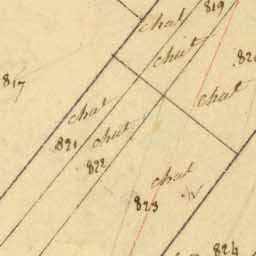 819
chat
chat
817
chat
chat
821
chat
822
chat
823
824